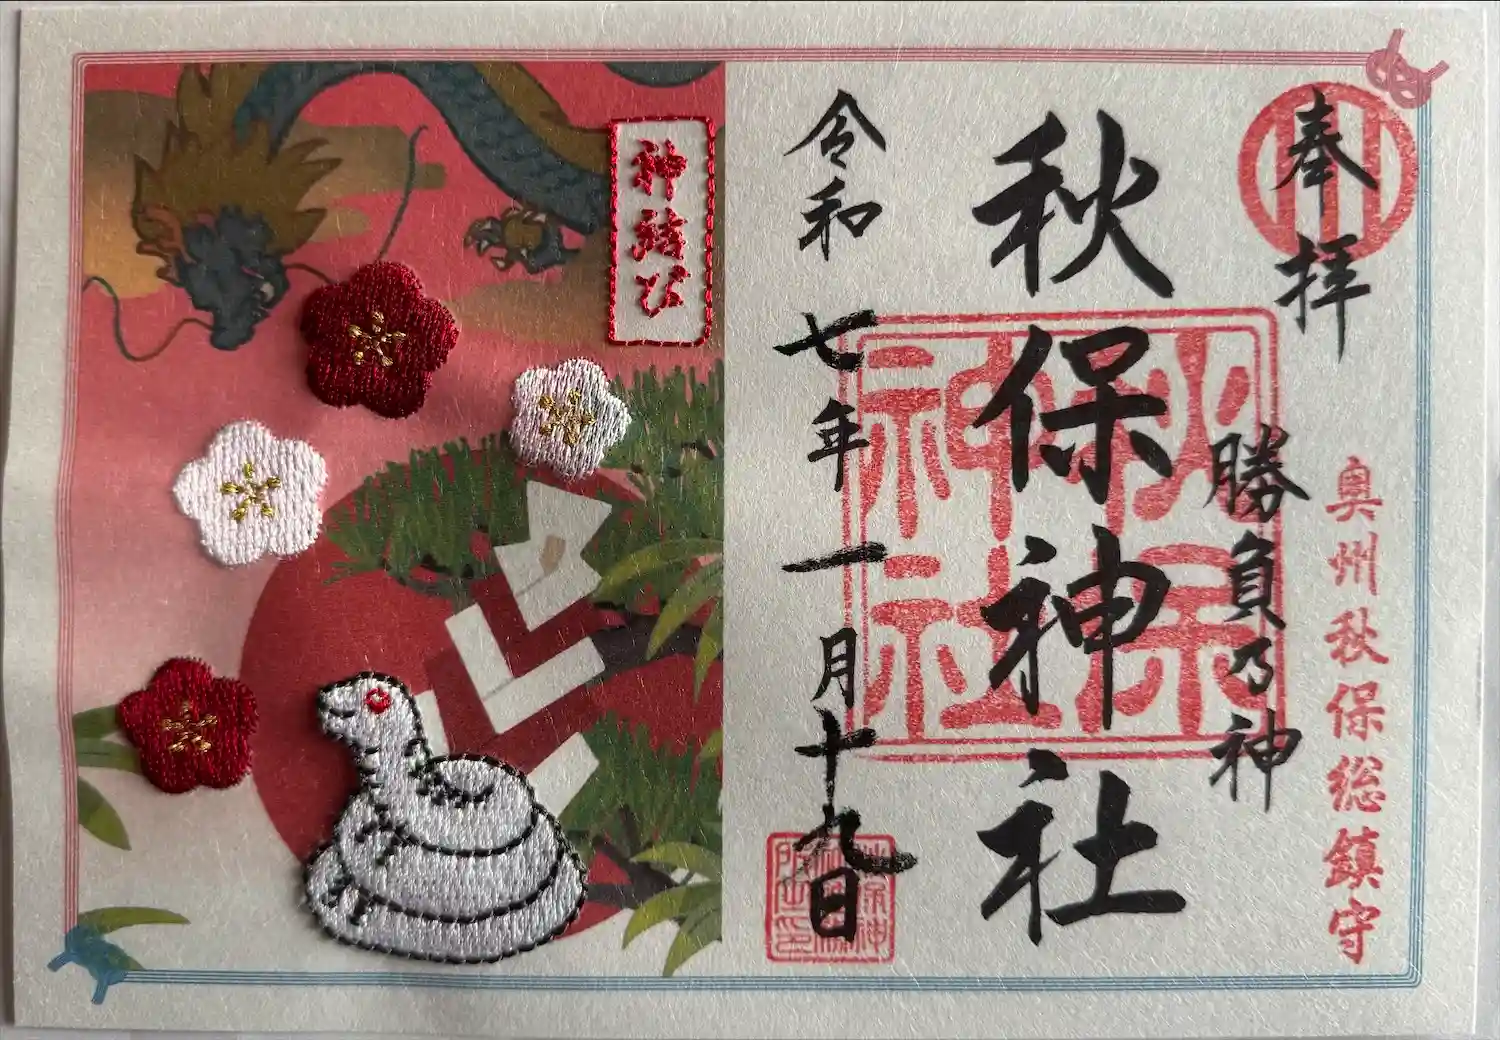 奉拝
奥州秋保総鎮守
勝負乃神
秋保神社
秋保
神社
令和七年一月十九日
神結び